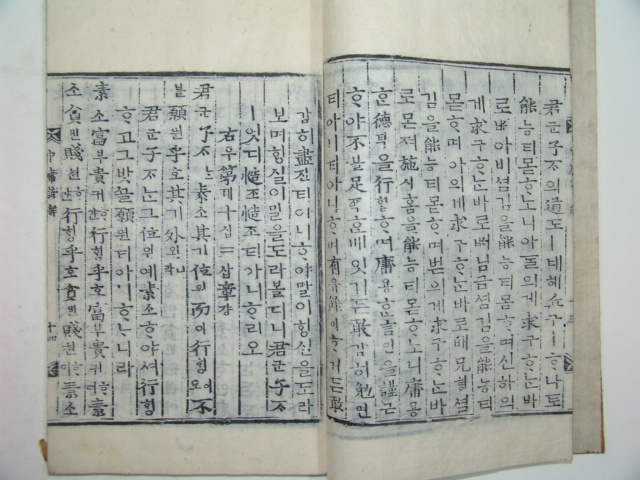 君군子ᄌᆞ의道도ㅣ네헤丘구ㅣᄒᆞ나토
能능티몯ᄒᆞ노니아ᄃᆞᆯ의게求구ᄒᆞᄂᆞᆫ바
로ᄡᅥ아비셤김을能능티몯ᄒᆞ며신하의
게求구ᄒᆞᄂᆞᆫ바로ᄡᅥ님금셤김을能능티
몯ᄒᆞ며아의게求구ᄒᆞᄂᆞᆫ바로ᄡᅥ兄형셤
김을能능티몯ᄒᆞ며벋의게求구ᄒᆞᄂᆞᆫ바
로몬져施시홈을能능티몯ᄒᆞ노니庸용
ᄒᆞᆫ德덕을行ᄒᆡᆼᄒᆞ며庸용ᄒᆞᆫ言언을謹근
ᄒᆞ야不블足죡ᄒᆞᆫ배잇거든敢감히勉면
티아니티아니ᄒᆞ며有유餘여ㅣ잇거든敢
감히盡진티아니ᄒᆞ야말이ᄒᆡᆼ실을도라
보며ᄒᆡᆼ실이말을도라볼디니君군子ᄌᆞ
ㅣ엇디慥조慥조티아니ᄒᆞ리오
右우第뎨十십三삼章쟝
君군子ᄌᆞᄂᆞᆫ素소其기位위而이行ᄒᆡᆼ이오不
블願원乎호其기外외니라
君군子ᄌᆞᄂᆞᆫ그位위예素소ᄒᆞ야셔行ᄒᆡᆼ
ᄒᆞ고그밧글願원티아니ᄒᆞᄂᆞ니라
素소富부貴귀ᄒᆞ얀行ᄒᆡᆼ乎호富부貴귀ᄒᆞ며素
소貧빈賤쳔ᄒᆞ얀行ᄒᆡᆼ乎호貧빈賤쳔ᄒᆞ며素소
中庸諺解 十四